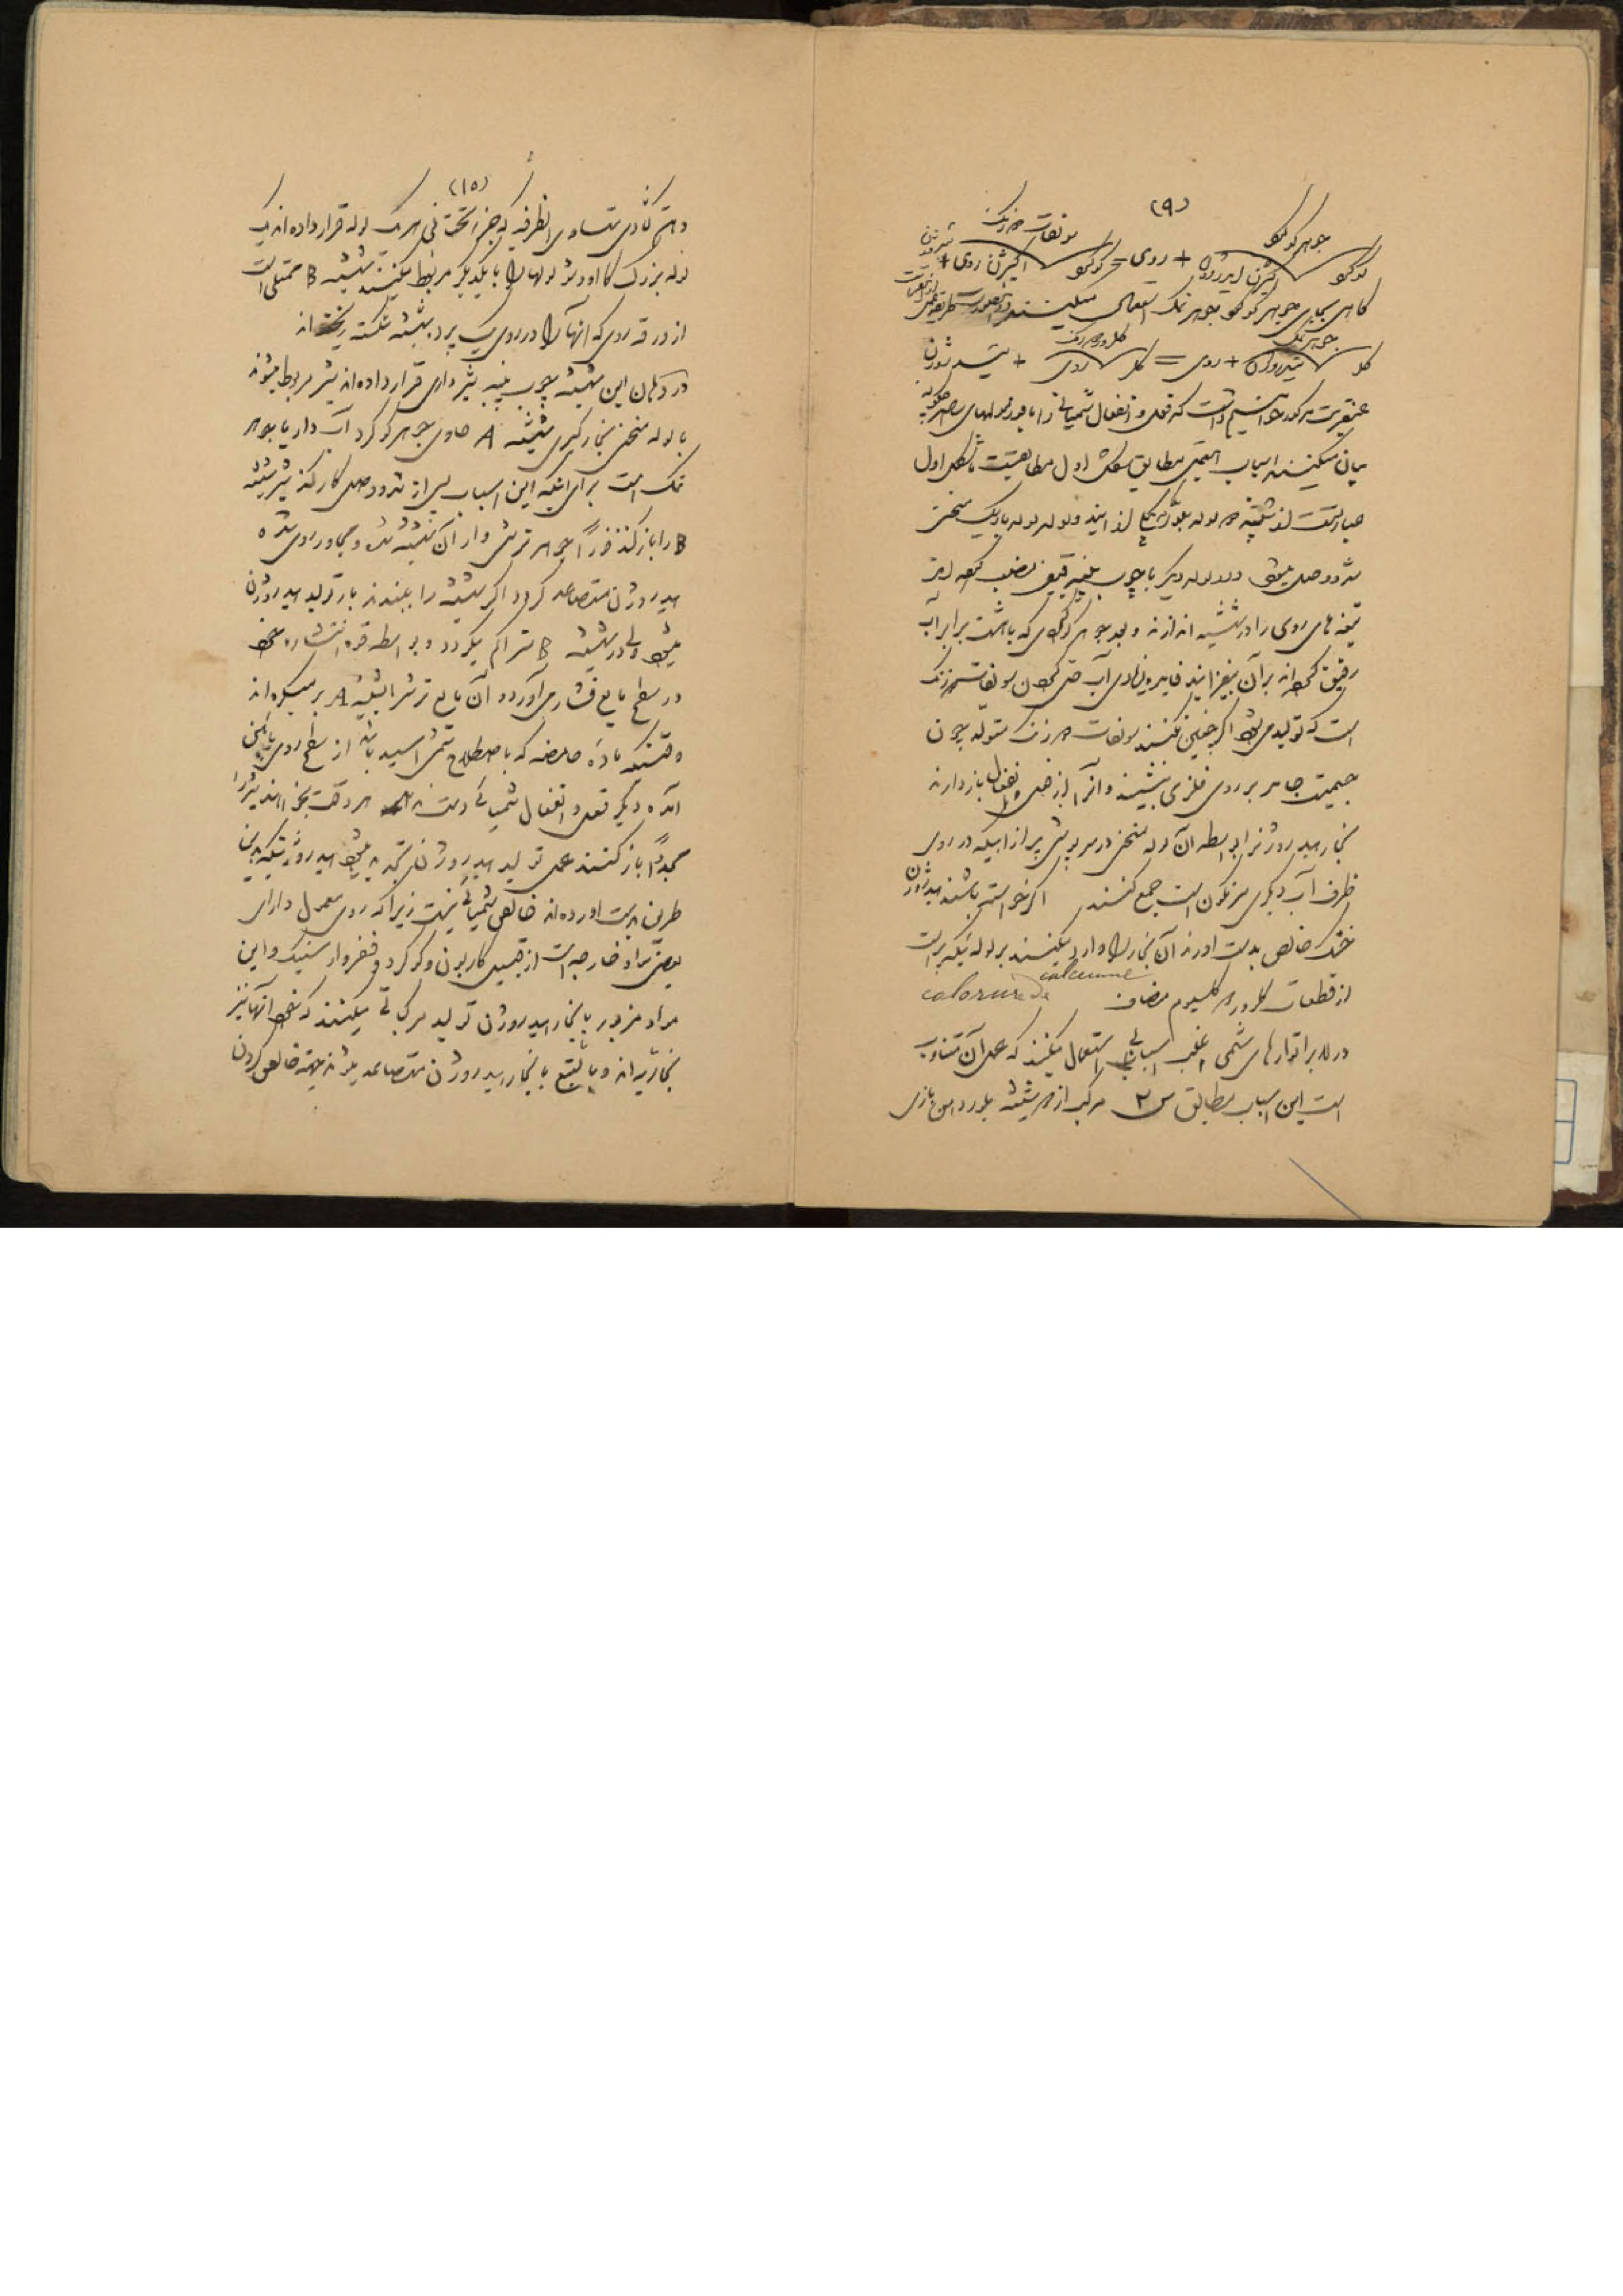 (۹)
جوهر گوگرد سولفات دزنک
گوگرد اکسیژن ئیدروژن + روی = گوگرد اکسیژن روی + ئیدروژن
گاهی بجای جوهر گوگرد جوهر نمک استعمال میکنند در اینصورت
جوهر نمک کلرور دزنک
کلر ئیدروژن + روی = کلر روی + ئیدروژن
عنقریب مذکور خواهیم داشت که فعل و انفعال شمیائی را با فورمولهای
بیان میکنند اسباب این عمل مطابق شکل اول
عبارتست از شیشه دو لوله بلوری
شده وصل میشود و لوله دیگر با چوب پنبه قیفی نصب
تیغه های روی را در شیشه اندازند و بعد جوهر گوگردی که با هشت برابر آب
رقیق کرده اند بر آن بیفزایند فایده زیادی آب حل کردن سولفات دزنک
است که تولید میشود اگر چنین نکنند سولفات دزنک متولده چون
جسمیت جامد بر روی فلزی بنشیند و آنرا از فعل و انفعال باز دارند
بخار ئیدروژنرا بواسطه آن لوله منحنی در سرپوشی پر از آبیکه در روی
ظرف آب دیگری سرنگون است جمع کنند اگر خواسته باشند ئیدروژن
خشک خالص بدست آورند آن بخار را وارد میکنند بر لوله دیگر پر است
از قطعات کلرور دکلسیوم مضاف calorure de calciume
در لابراتوارهای شمی اغلب اسبابی استعمال میکنند که عمل آن متناوب
است این اسباب مطابق ش ۲ مرکب از دو شیشه بلور دهن بازی
(۱۰)
و هم گازی متساوی الظرفیه که جزء تحتانی هر یک لوله قرار داده اند یک
لوله بزرگ کااوچو لولها را با یکدیگر مربوط میکنند شیشه B ممتلی است
از ورقه روی که آنها را در روی بسیار پرده شیشه شکسته ریخته اند
در دهان این شیشه چوب پنبه شیرداری قرار داده اند شیر مربوط میشود
با لوله منحنی بخار گیری شیشه A حاوی جوهر گوگرد آب دار یا جوهر
نمک است برای اینکه این اسباب پس از شد و وصل کار کند شیر شیشه
B را باز کنند فوراً جوهر ترش وارد آن شیشه شده و مجاور روی شده
ئیدروژن متصاعد گردد اگر شیشه را ببندند باز تولید ئیدروژن
میشود ولی در شیشه B متراکم میگردد و بواسطه قوه انتشاریه خود
در سطح مایع فشار می آورد و آن مایع ترش را بشیشه A بر میگرداند
وقتیکه ماده حامضه که باصطلاح شمی اسید باشد از سطح روی پائین
آمده دیگر فعل و انفعال شمیائی دست ندهد هر وقت بخواهند شیر را
مجدداً باز کنند عمل تولید ئیدروژن تجدید میشود ئیدروژنیکه باین
طریق بدست آورده اند خالص شمیائی نیست زیرا که روی معمول دارای
بعضی مواد خارجه است از قبیل کاربون و گوگرد و فسفر و ارسنیک و این
مواد مزبور با بخار ئیدروژن تولید مرکباتی میکنند که خود آنها نیز
بخاریه اند و بالتبع با بخار ئیدروژن متصاعد میشوند بجهته خالص کردن